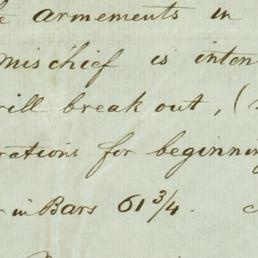 armements in
mischief is inten
will break out, (
rations for beginning
in Bars 61 3/4.